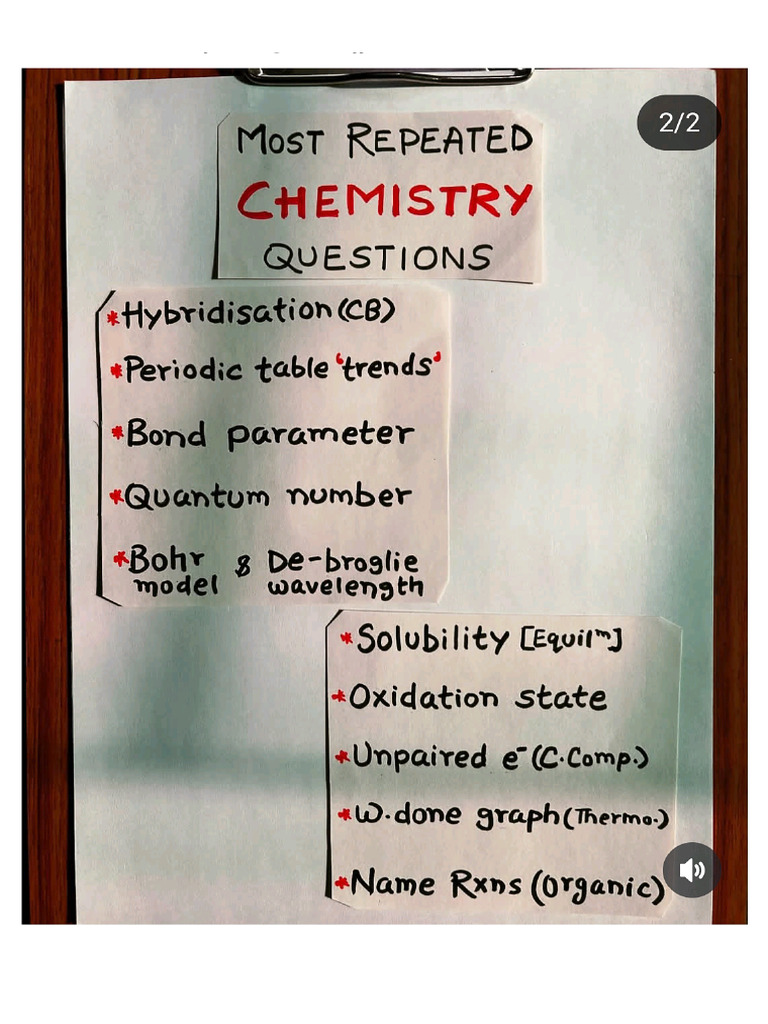 2/2
MOST REPEATED
CHEMISTRY
QUESTIONS
*Hybridisation (CB)
*Periodic table 'trends'
*Bond parameter
*Quantum number
*Bohr & De-broglie
model wavelength
*Solubility [Equilᵐ]
*Oxidation state
*Unpaired e⁻ (C.Comp.)
*W.done graph (Thermo.)
*Name Rxns (Organic)